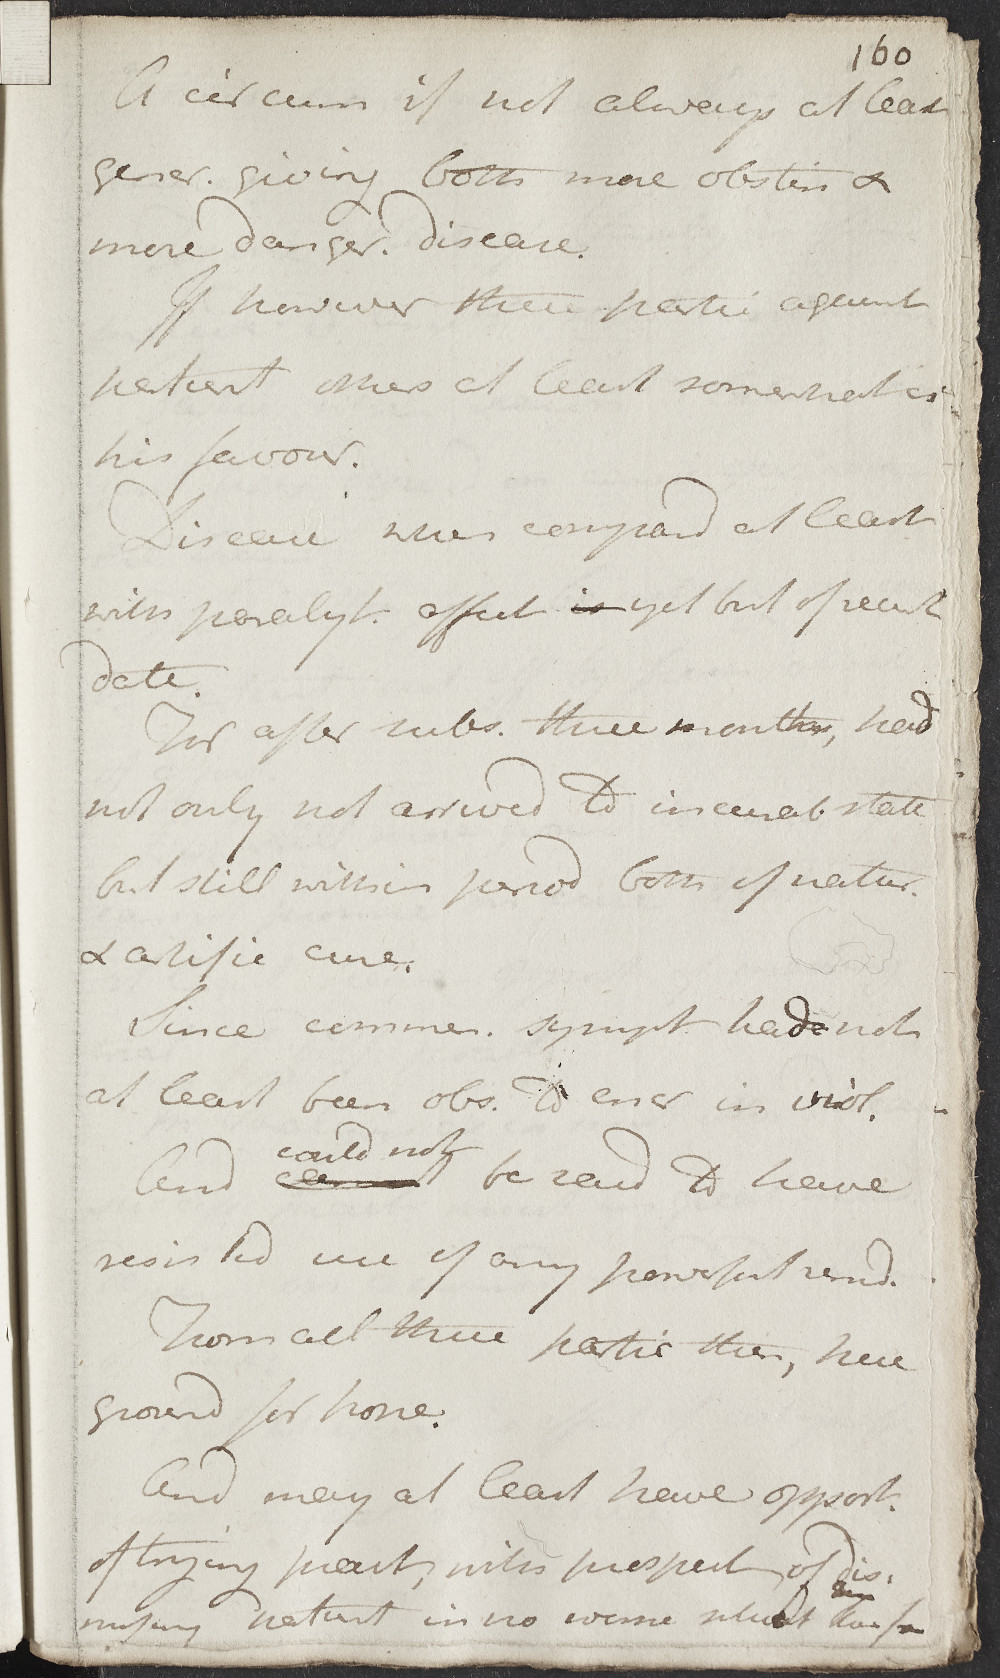 160
A circum if not always at least
gener. giving both more obstin &
more danger. disease.
If however these partic against
patient others at least somewhat in
his favour.
Disease when compard at least
with paralyt. affect is yet but of recent
date.
For after subs. three months, had
not only not arrived to incurab. state
but still within period both of natur.
& artific cure.
Since commen. sympt. had not
at least been obs. to encr in viol.
could not
And be said to have
resisted use of any powerful remed.
From all these partic then, here
ground for hope.
And may at least have opport.
of trying pract, with prospect of dis.
missing patient in no worse